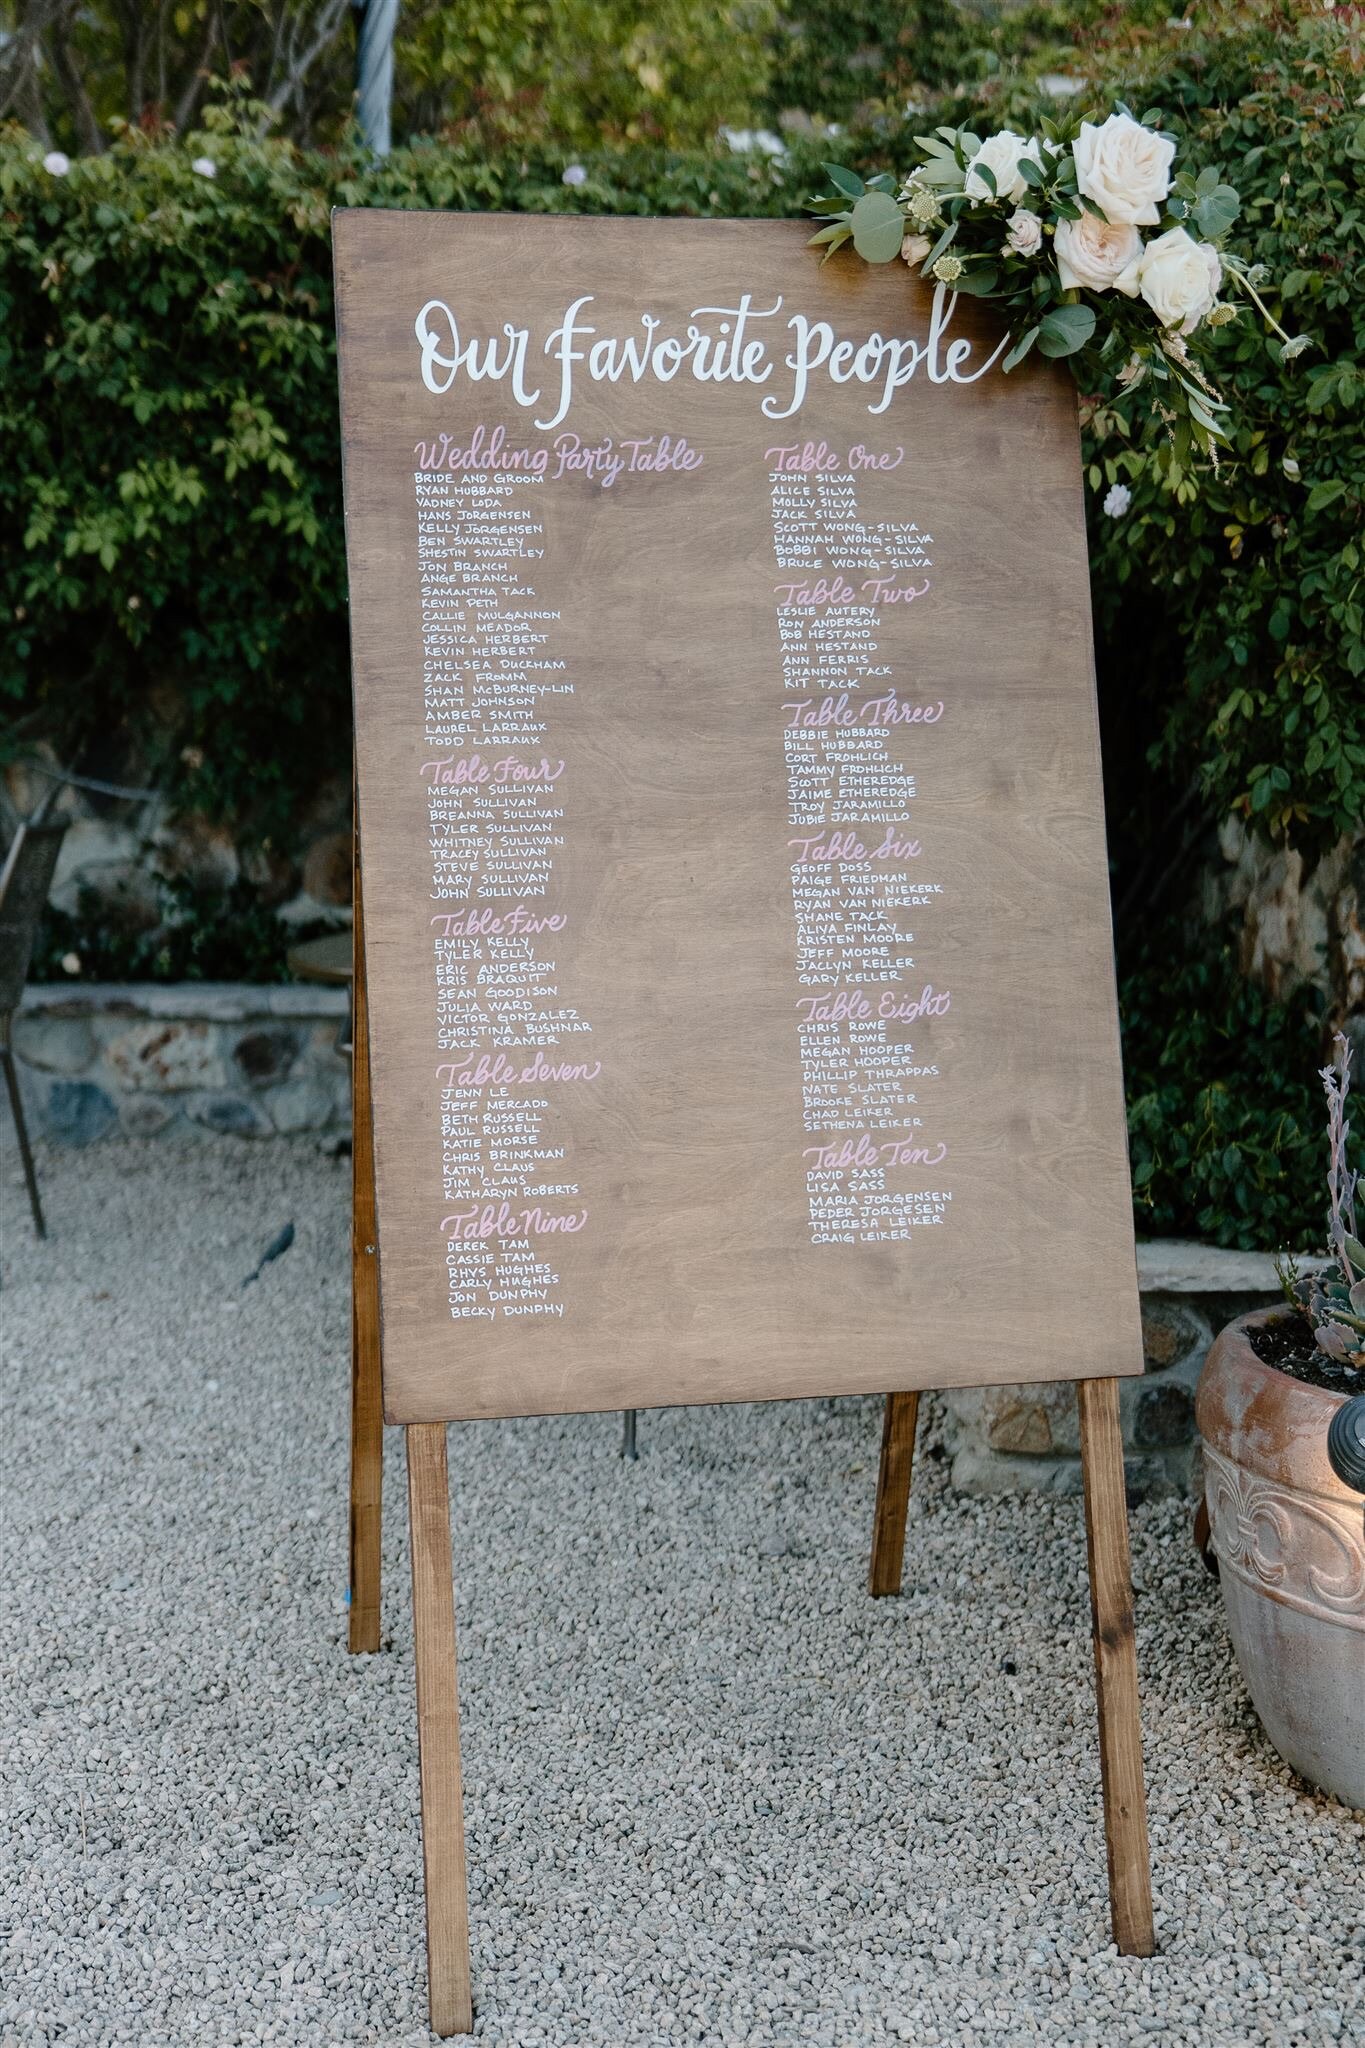 Our Favorite People
Wedding Party Table
BRIDE AND GROOM
RYAN HUBBARD
YADNEY LODA
HANS JORGENSEN
KELLY JORGENSEN
BEN SWARTLEY
SHESTIN SWARTLEY
JON BRANCH
ANGE BRANCH
SAMANTHA TACK
KEVIN PETH
CALLIE MULGANNON
COLLIN MEADOR
JESSICA HERBERT
KEVIN HERBERT
CHELSEA DUCKHAM
ZACK FROMM
SHAN McBURNEY-LIN
MATT JOHNSON
AMBER SMITH
LAUREL LARRAUX
TODD LARRAUX
Table Four
MEGAN SULLIVAN
JOHN SULLIVAN
BREANNA SULLIVAN
TYLER SULLIVAN
WHITNEY SULLIVAN
TRACEY SULLIVAN
STEVE SULLIVAN
MARY SULLIVAN
JOHN SULLIVAN
Table Five
EMILY KELLY
TYLER KELLY
ERIC ANDERSON
KRIS BRAQUIT
SEAN GOODISON
JULIA WARD
VICTOR GONZALEZ
CHRISTINA BUSHNAR
JACK KRAMER
Table Seven
JENN LE
JEFF MERCADO
BETH RUSSELL
PAUL RUSSELL
KATIE MORSE
CHRIS BRINKMAN
KATHY CLAUS
JIM CLAUS
KATHARYN ROBERTS
Table Nine
DEREK TAM
CASSIE TAM
RHYS HUGHES
CARLY HUGHES
JON DUNPHY
BECKY DUNPHY
Table One
JOHN SILVA
ALICE SILVA
MOLLY SILVA
JACK SILVA
SCOTT WONG-SILVA
HANNAH WONG-SILVA
BOBBI WONG-SILVA
BRUCE WONG-SILVA
Table Two
LESLIE AUTERY
RON ANDERSON
BOB HESTAND
ANN HESTAND
ANN FERRIS
SHANNON TACK
KIT TACK
Table Three
DEBBIE HUBBARD
BILL HUBBARD
CORT FROHLICH
TAMMY FROHLICH
SCOTT ETHEREDGE
JAIME ETHEREDGE
TROY JARAMILLO
JUBIE JARAMILLO
Table Six
GEOFF DOSS
PAIGE FRIEDMAN
MEGAN VAN NIEKERK
RYAN VAN NIEKERK
SHANE TACK
ALIYA FINLAY
KRISTEN MOORE
JEFF MOORE
JACLYN KELLER
GARY KELLER
Table Eight
CHRIS ROWE
ELLEN ROWE
MEGAN HOOPER
TYLER HOOPER
PHILLIP THRAPPAS
NATE SLATER
BROOKE SLATER
CHAD LEIKER
SETHENA LEIKER
Table Ten
DAVID SASS
LISA SASS
MARIA JORGENSEN
PEDER JORGESEN
THERESA LEIKER
CRAIG LEIKER